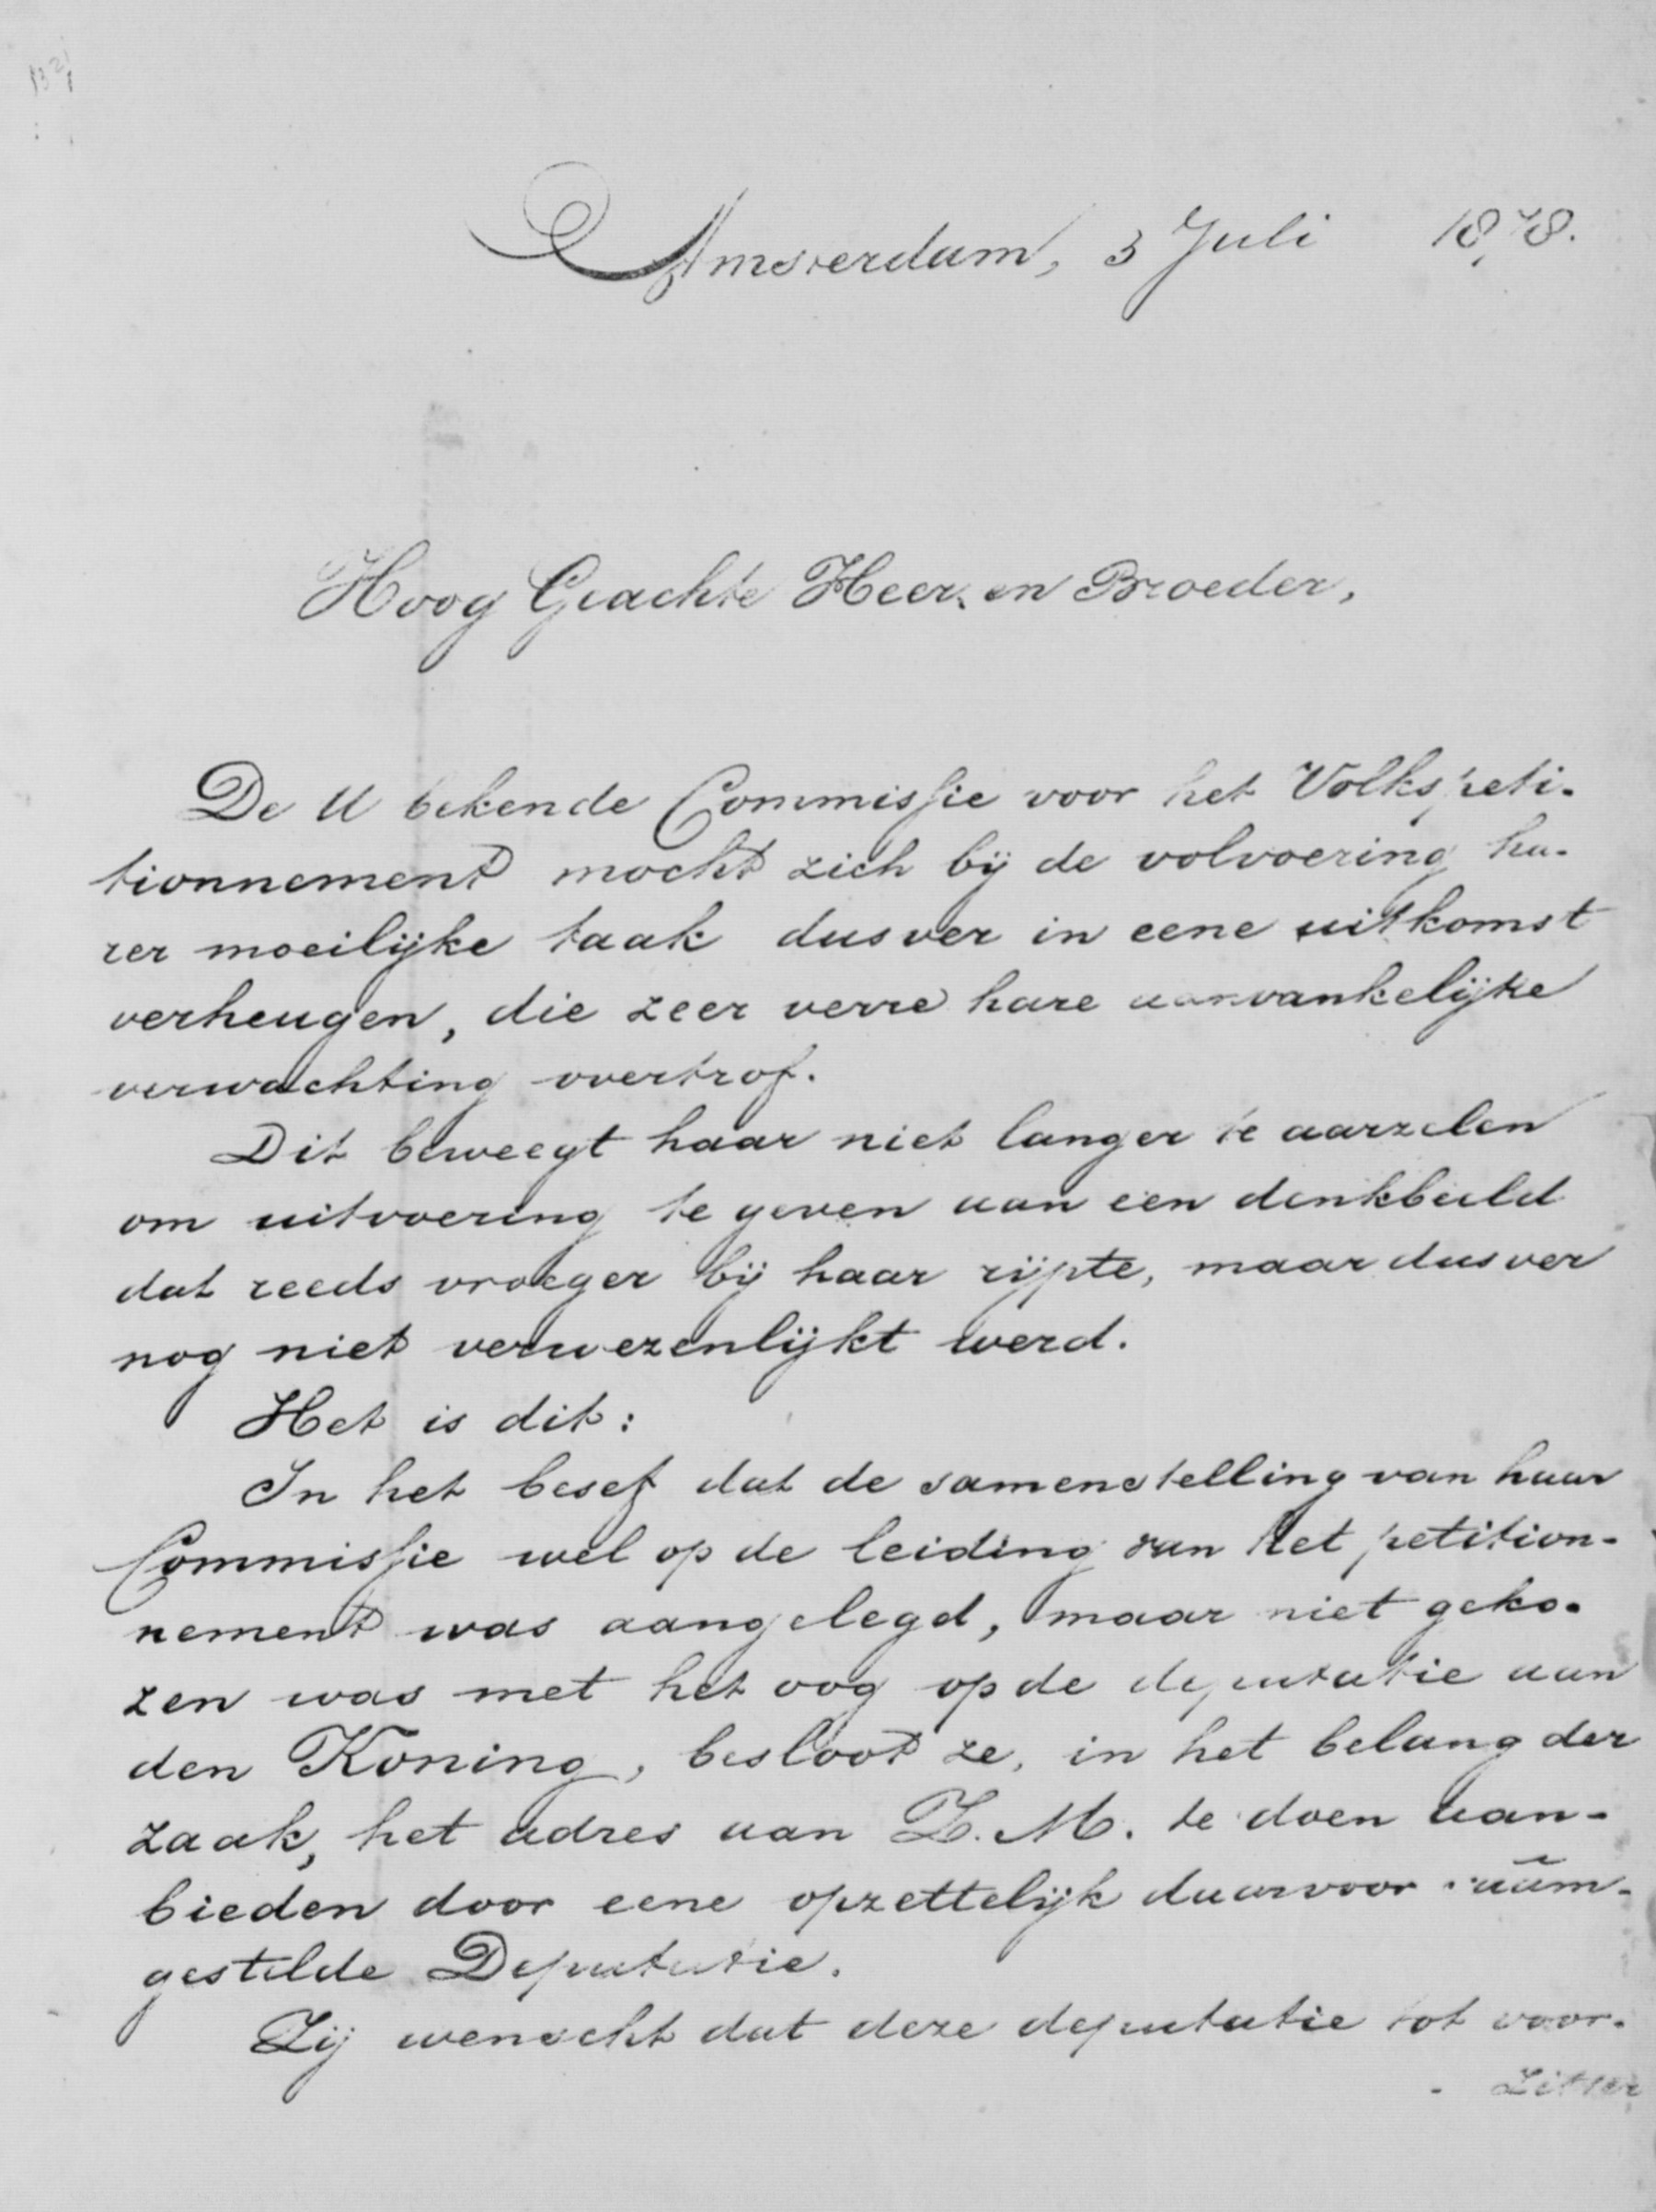 Amsterdam, 3 Juli 1878.
Hoog Geachte Heer en Broeder,
De U bekende Commissie voor het Volkspeti-
tionnement mocht zich bij de volvoering ha-
rer moeilijke taak dusver in eene uitkomst
verheugen, die zeer verre hare aanvankelijke
verwachting overtrof.
Dit beweegt haar niet langer te aarzelen
om uitvoering te geven aan een denkbeeld
dat reeds vroeger bij haar rijpte, maar dusver
nog niet verwezenlijkt werd.
Het is dit:
In het besef dat de samenstelling van haar
Commissie wel op de leiding van het petition-
nement was aangelegd, maar niet geko-
zen was met het oog op de deputatie aan
den Koning, besloot ze, in het belang der
zaak, het adres aan Z. M. te doen aan-
bieden door eene opzettelijk daarvoor saam-
gestelde Deputatie.
Zij wenscht dat deze deputatie tot voor-
zitter